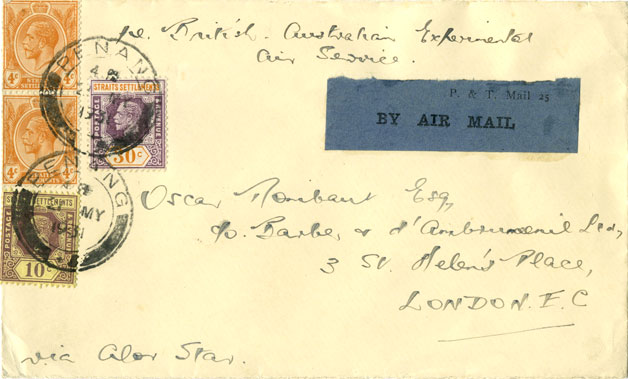 pe British-Australian Experimental
Air Service.
P. & T. Mail 25
BY AIR MAIL
4c
STRAITS SETTLEMENTS
POSTAGE & REVENUE
30c
4c
PENANG
1931
PENANG
MY
1931
SETTLEMENTS
POSTAGE
10c
Oscar Esq,
c/o. Barber & d'Ambrumenil Ltd,
3 St. Helen's Place,
LONDON. E.C
via Alor Star.